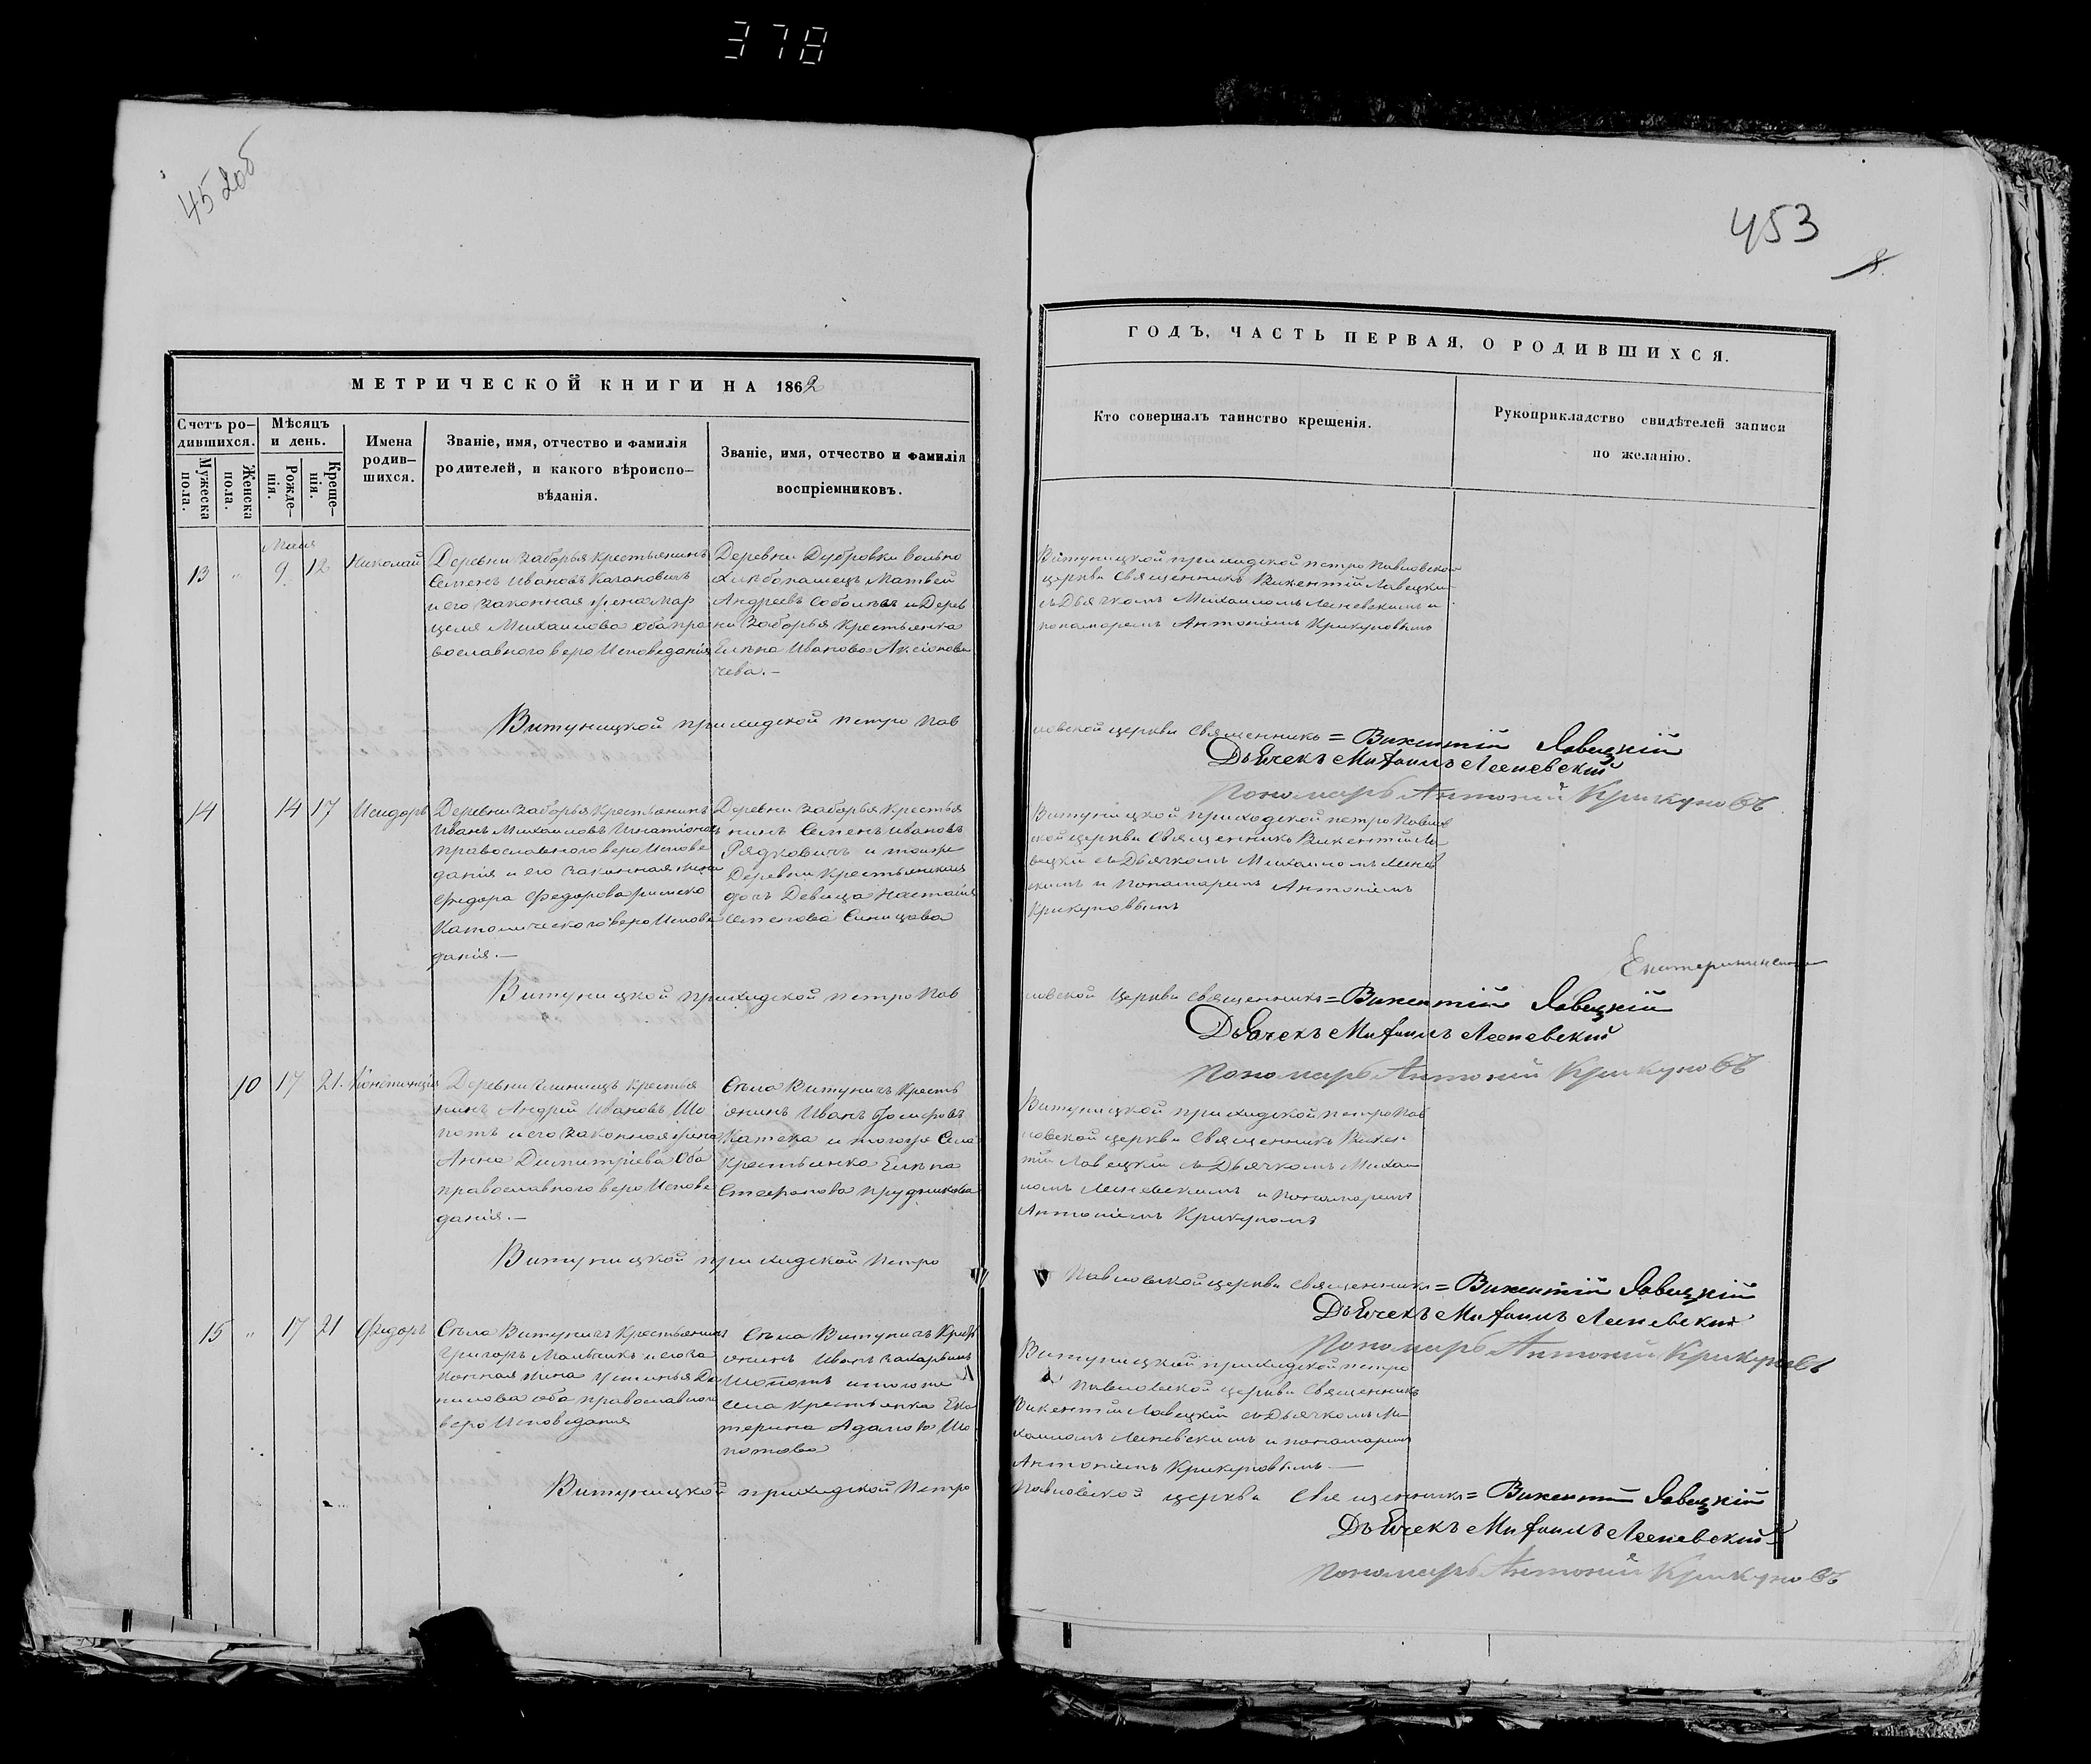 378
452об
453
МЕТРИЧЕСКОЙ КНИГИ НА 1862
ГОДЪ, ЧАСТЬ ПЕРВАЯ, О РОДИВШИХСЯ.
Счетъ ро-
дившихся.
Мужеска
пола.
Женска
пола.
Мѣсяцъ
и день.
Рожде-
нія.
Креще-
нія.
Имена
родив-
шихся.
Званіе, имя, отчество и фамилія
родителей, и какого вѣроиспо-
вѣданія.
Званіе, имя, отчество и фамилія
воспріемниковъ.
Кто совершалъ таинство крещенія.
Рукоприкладство свидѣтелей записи
по желанію.
Мая
13 " 9 12 Николай
Деревни Заборья крестьянинъ
Семенъ Ивановъ Каганович
и его законная жена Мар
целя Михаилова оба пра
вославного вероИсповедания
Деревни Дубровки вольно
Хлѣбопашецъ Матвей
Андреевъ и Дерев
ни Заборья Крестьянка
Елѣна Иванова Аксіонови
чева.-
Витуницкой приходской петро Павловской
церкви Священникъ Викентій Лавецкій
съ Дьячкомъ Михаиломъ и
понамаремъ Антоніемъ Крикуновымъ
Витуницкой приходской петро Пав
ловской церкви Священникъ = Викентій Лавецкій
Дьячекъ Михаилъ
Пономарь Антоній Крикуновъ
14 14 17 Исидоръ
Деревни Заборья Крестьянинъ
Иванъ Михаиловъ
православного вероИспове
дания и его законная жена
Федора Федорова римско
Католического вероИспове
данія.-
Деревни Заборья Крестья
нинъ Семенъ Ивановъ
Рядковичъ и тойже
Деревни Крестьянская
дочь Девица Настасія
Семенова Синицова
Витуницкой приходской петро Павлов
ской церкви Священникъ Викентій Ла
вецкій съ Дьячкомъ Михаиломъ
скимъ и Понамаремъ Антоніемъ
Крикуновымъ
Витуницкой приходской петро Пав
ловской Церкви Священникъ = Викентій Лавецкій
Дьячекъ Михаилъ
Пономарь Антоній Крикуновъ
10 17 21. Констанція
Деревни крестья
нинъ Андрей Ивановъ Шо
потъ и его законная жена
Анна Димитріева Оба
православного вероИспове
данія.-
Сѣла Витуничъ Кресть
янинъ Иванъ
и тогоже Села
крестьянка Елѣна
Стефанова прудникова
Витуницкой приходской петро Пав
ловской церкви Священникъ Викен
тій Лавецкій съ Дьячкомъ Михаи
ломъ и понамаремъ
Антоніемъ Крикуномъ
Витуницкой приходской Петро
Павловской церкви Священникъ = Викентій Лавецкій
Дьячекъ Михаилъ
Пономарь Антоній Крикуновъ
15 " 17 21 Федоръ
Сѣла Витуничъ Крестьянинъ
Григоръ и его за
конная жена Устинья Да
нилова оба православного
вероИсповедания
Сѣла Витуничъ Крестъ
янинъ Иванъ Захарьинъ
Шопотъ и тогоже
села крестьянка Ека
терина Адамова Шо
потова
Витуницкой приходской петро
Павловской церкви Священникъ
Викентій Лавецкій съ Дьячкомъ Ми
хаиломъ и понамаремъ
Антоніемъ Крикуновымъ.-
Витуницкой приходской Петро
Павловской церкви Священникъ = Викентій Лавецкій
Дьячекъ Михаилъ
Пономарь Антоній Крикуновъ